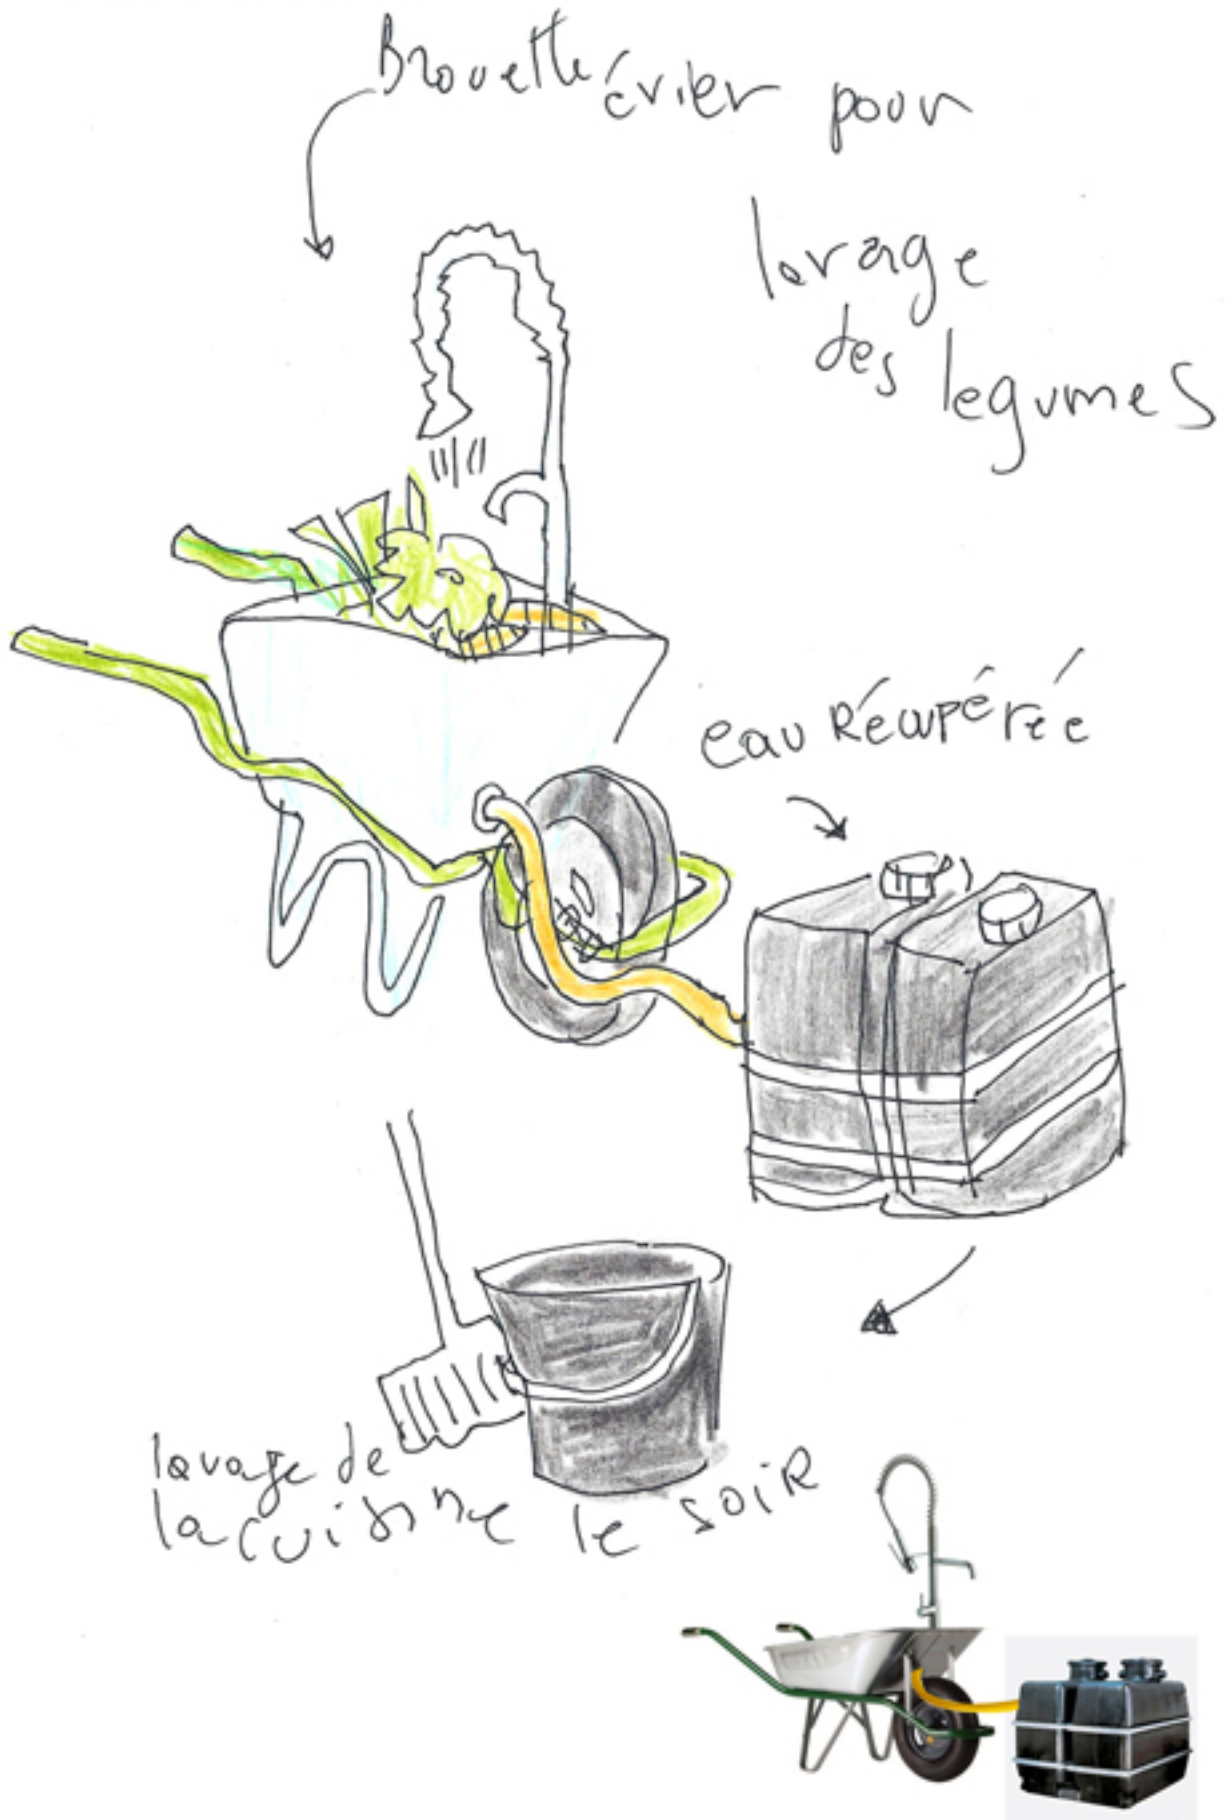 Brouette évier pour
lavage
des legumes
eau Récupérée
lavage de
la cuisine le soir